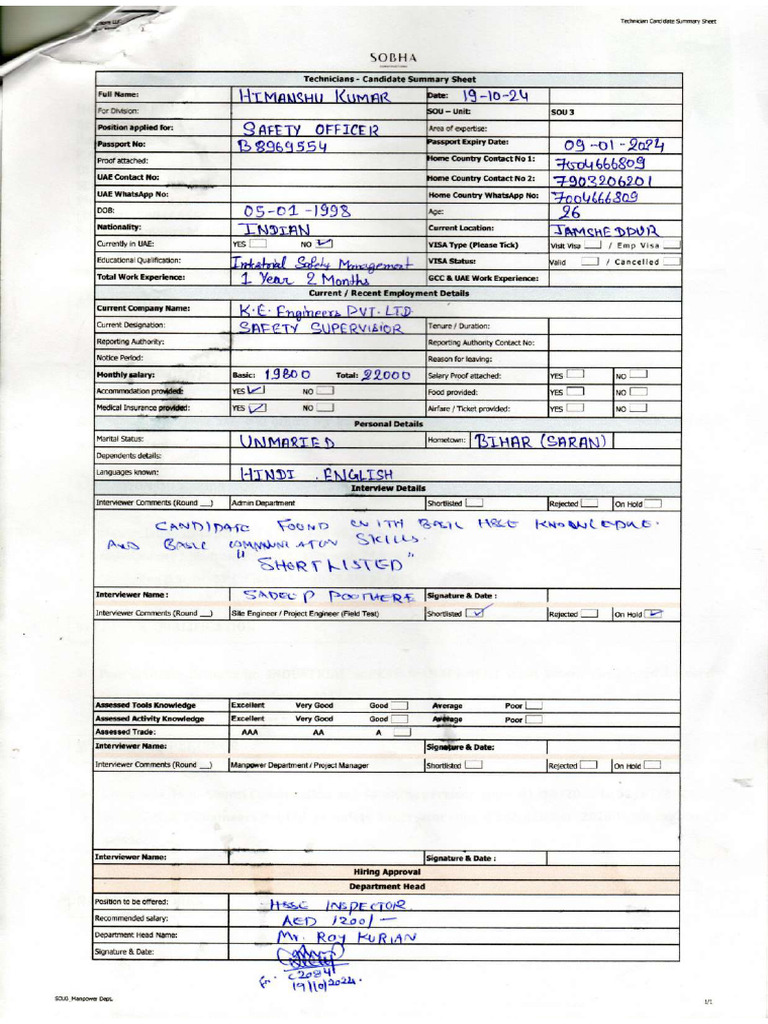 Technician Candidate Summary Sheet
SOBHA
Technicians - Candidate Summary Sheet
Full Name: HIMANSHU KUMAR Date: 19-10-24
For Division: SOU – Unit: SOU 3
Position applied for: SAFETY OFFICER Area of expertise:
Passport No: B8969554 Passport Expiry Date: 09-01-2024
Proof attached: Home Country Contact No 1: 7004666809
UAE Contact No: Home Country Contact No 2: 7903206201
UAE WhatsApp No: Home Country WhatsApp No: 7004666809
DOB: 05-01-1998 Age: 26
Nationality: INDIAN Current Location: JAMSHEDDUR
Currently in UAE: YES NO VISA Type (Please Tick) Visit Visa / Emp Visa
Educational Qualification: Industrial Safety Management VISA Status: Valid / Cancelled
Total Work Experience: 1 Year 2 Months GCC & UAE Work Experience:
Current / Recent Employment Details
Current Company Name: K.E. Engineers PVT. LTD
Current Designation: SAFETY SUPERVISIOR Tenure / Duration:
Reporting Authority: Reporting Authority Contact No:
Notice Period: Reason for leaving:
Monthly salary: Basic: 19800 Total: 22000 Salary Proof attached: YES NO
Accommodation provided: YES NO Food provided: YES NO
Medical Insurance provided: YES NO Airfare / Ticket provided: YES NO
Personal Details
Marital Status: UNMARIED Hometown: BIHAR (SARAN)
Dependents details:
Languages known: HINDI . ENGLISH
Interview Details
Interviewer Comments (Round __) Admin Department Shortlisted Rejected On Hold
CANDIDATE FOUND WITH BASIC HSE KNOWLEDGE.
AND BASIC COMMUNICATON SKILLS.
"SHORTLISTED"
Interviewer Name: Signature & Date :
Interviewer Comments (Round __) Site Engineer / Project Engineer (Field Test) Shortlisted Rejected On Hold
Assessed Tools Knowledge Excellent Very Good Good Average Poor
Assessed Activity Knowledge Excellent Very Good Good Average Poor
Assessed Trade: AAA AA A
Interviewer Name: Signature & Date:
Interviewer Comments (Round __) Manpower Department / Project Manager Shortlisted Rejected On Hold
Interviewer Name: Signature & Date :
Hiring Approval
Department Head
Position to be offered: HSSE INSPECTOR
Recommended salary: AED 1200/-
Department Head Name: Mr. ROY KURIAN
Signature & Date:
C2084
19/10/2024.
SOU3_Manpower Dept. 1/1